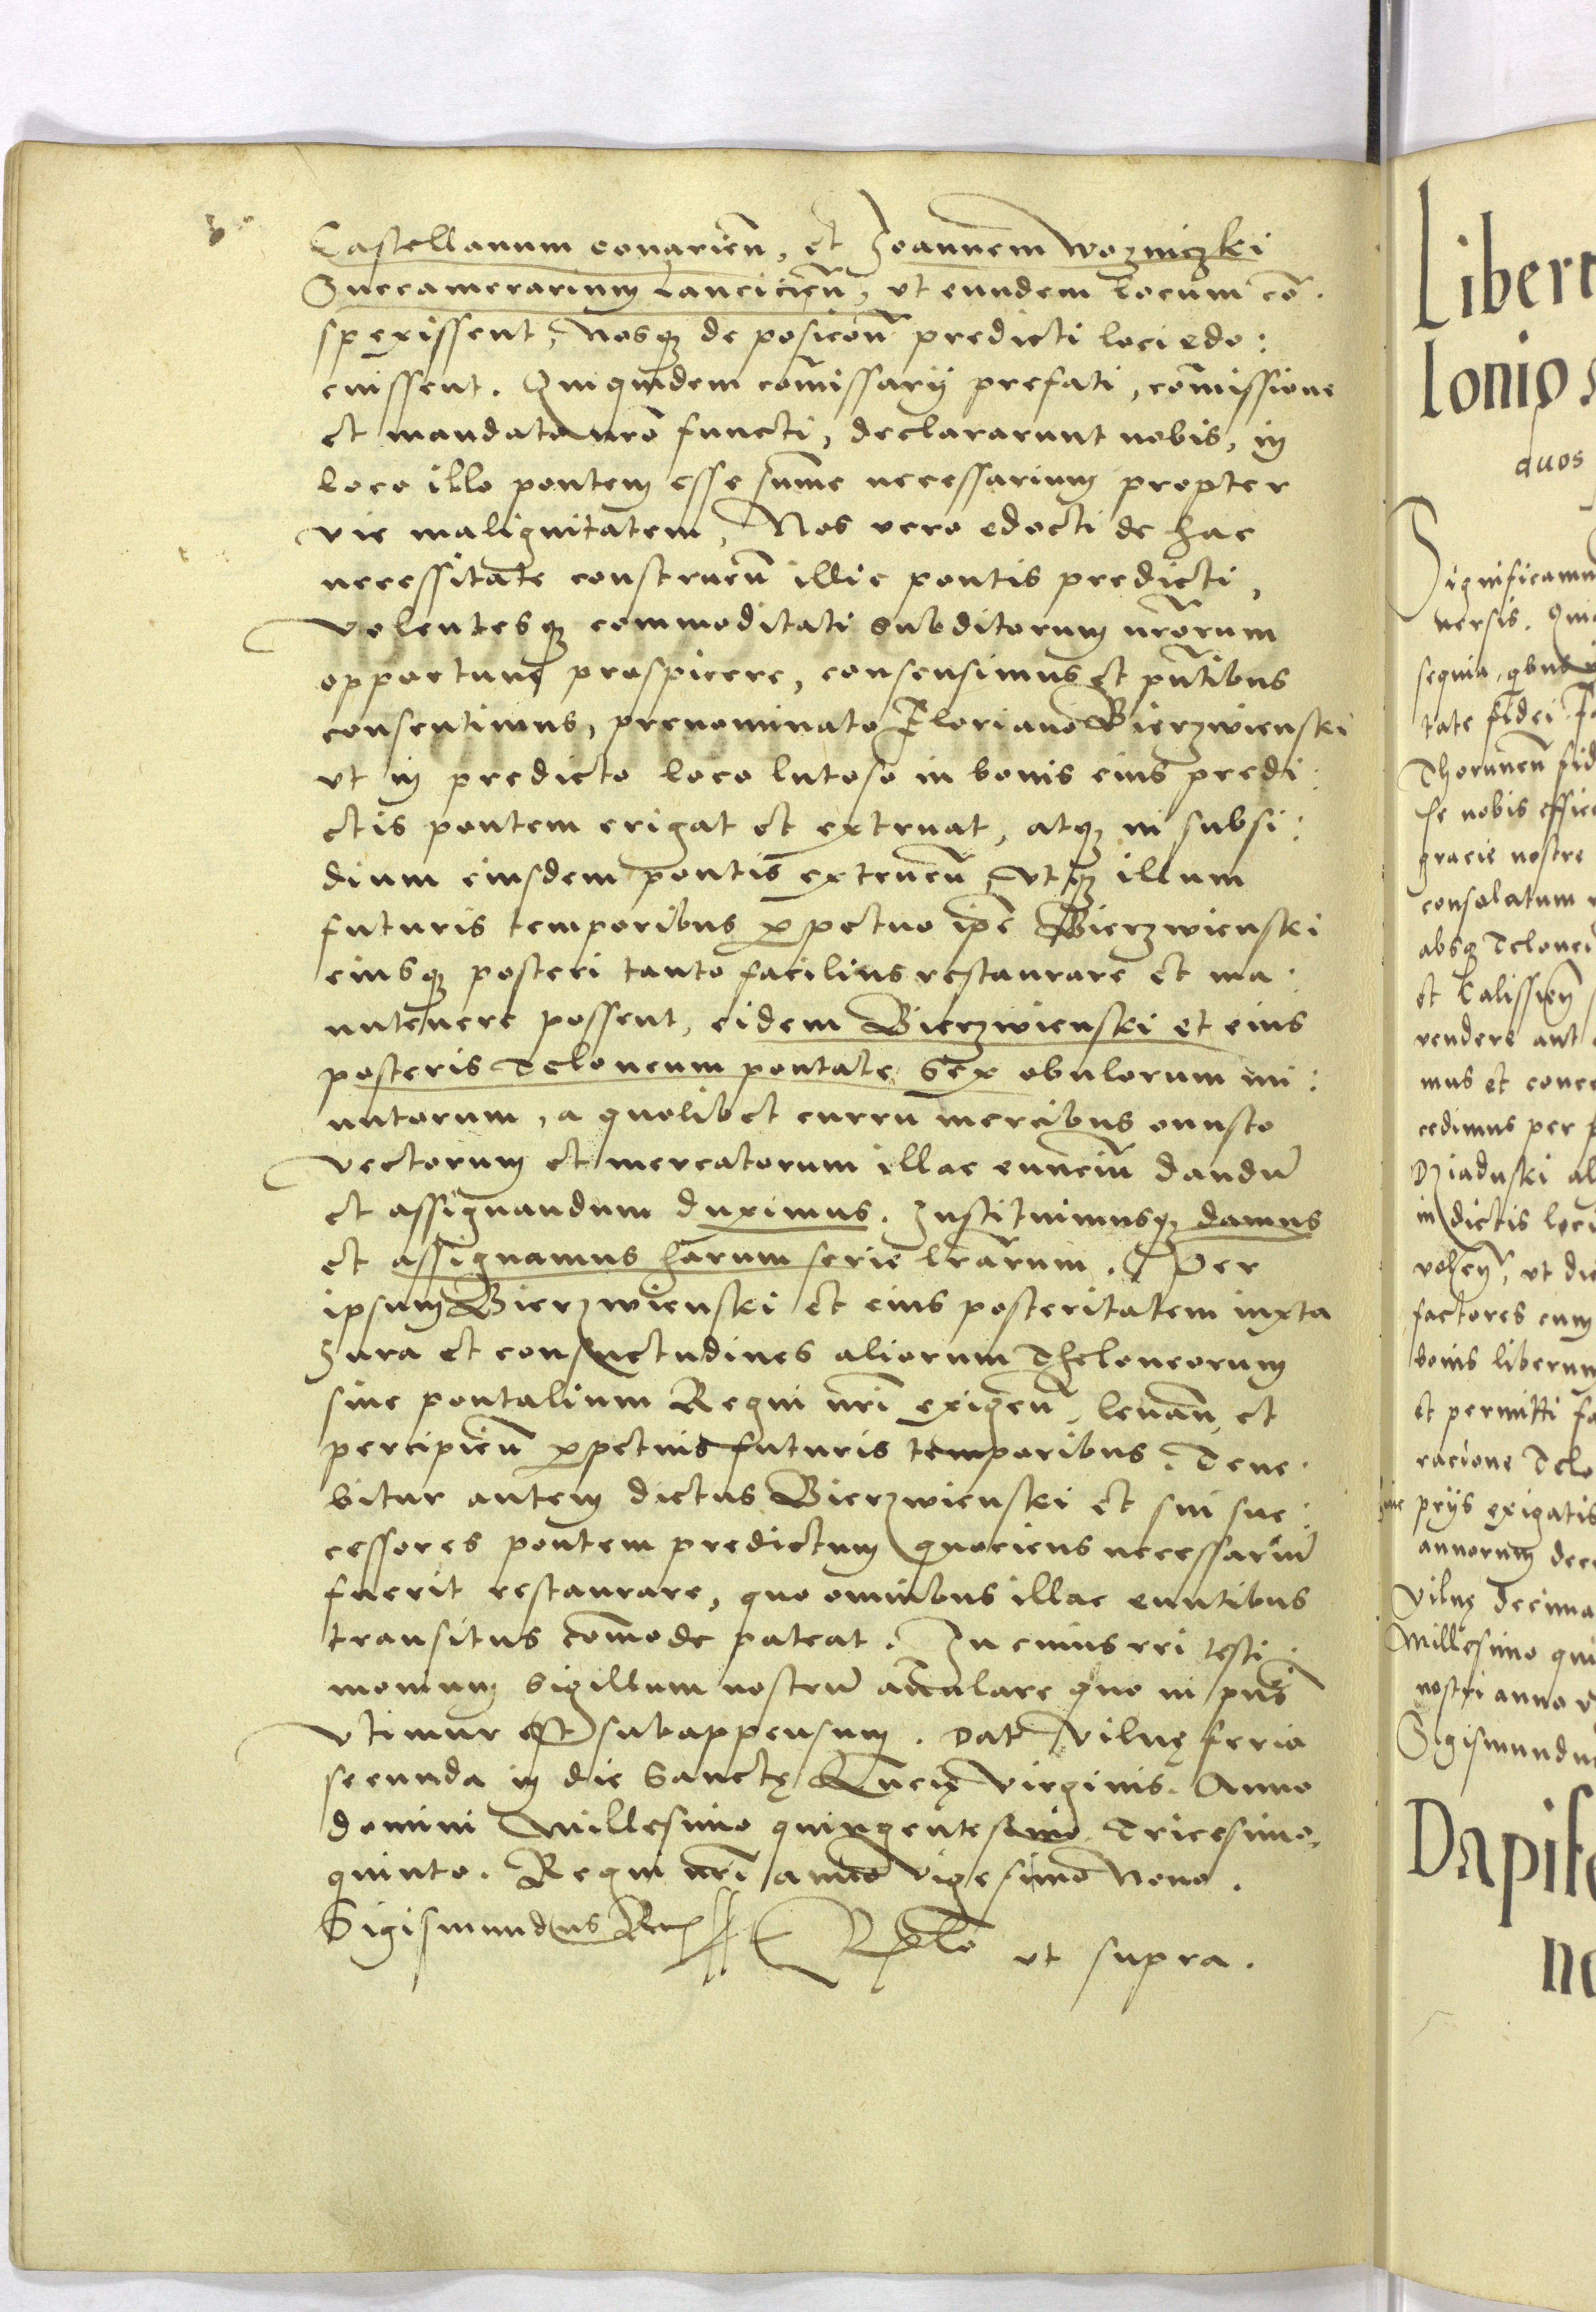 Castellanum conarien̄, et Joannem Wozniczki
Succamerarium Lancicien̄, vt eundem locum cō
spexissent, Nosq3 de posicōn̄ predicti loci edo:
cuissent. Qui quidem cōmissarij prefati, cōmissione
et mandato nr̄o functi, declararunt nobis, in
loco illo pontem esse sum̄e necessarium propter
vie malignitatem, Nos vero edocti de hac
necessitate construen̄ illic pontis predicti,
volentesq3 commoditati subditorum nr̄orum
opportune prospicere, consensimus et pn̄tibus
consentimus, prenominato Floriano Bierzwienski
vt in predicto loco lutoso in bonis eius predi:
ctis pontem erigat et extruat, atq3 in subsi:
dium eiusdem pontis extruen̄, vtq3 illum
futuris temporibus perpetuo ip̄e Bierzwienski
eiusq3 posteri tanto facilius restaurare et ma:
nutenere possent, eidem Bierzwienski et eius
posteris Teloneum pontale sex obulorum mi:
nutorum, a quolibet curru mercibus onusto
vectorum et mercatorum illac eunciū dandū
et assignandum duximus. Instituimusq3 damus
et assignamus harum serie lr̄arum. Per
ipsum Bierzwienski et eius posteritatem iuxta
Jura et consuetudines aliorum Theloneorum
siue pontalium Regni nr̄i exigen̄, leuan̄, et
percipien̄ perpetuis futuris temporibus. Tene:
bitur autem dictus Bierzwienski et sui suc:
cessores pontem predictum quociens necessariū
fuerit restaurare, quo omnibus illac euntibus
transitus com̄ode pateat. In cuius rei testi:
monium sigillum nostrū an̄ulare quo in pn̄s
vtimur est subappensum. Dat Vilnę feria
secunda in die Sanctę Lucię virginis. Anno
domini Millesimo quingentesimo Tricesimo
quinto. Regni nr̄i anno vigesimo Nono.
Sigismundus Rex Rel̄o vt supra.
Libert
lonio
quos
Significamu
uersis.
sequia, qbus
tate fidei
Thorunen̄ fid
se nobis effice
gracie nostre
consolatum
absq3 Telonei
et Calissien̄
vendere aut
mus et conce
cedimus per
Dziaduski al
in dictis loci
volen̄, vt di
factores cum
bonis liberum
et permitti fa
racione Telo
prijs exigatis
annorum dece
Vilnę Decima
Millesimo qui
nostri anno v
Sigismundu
Dapife
no